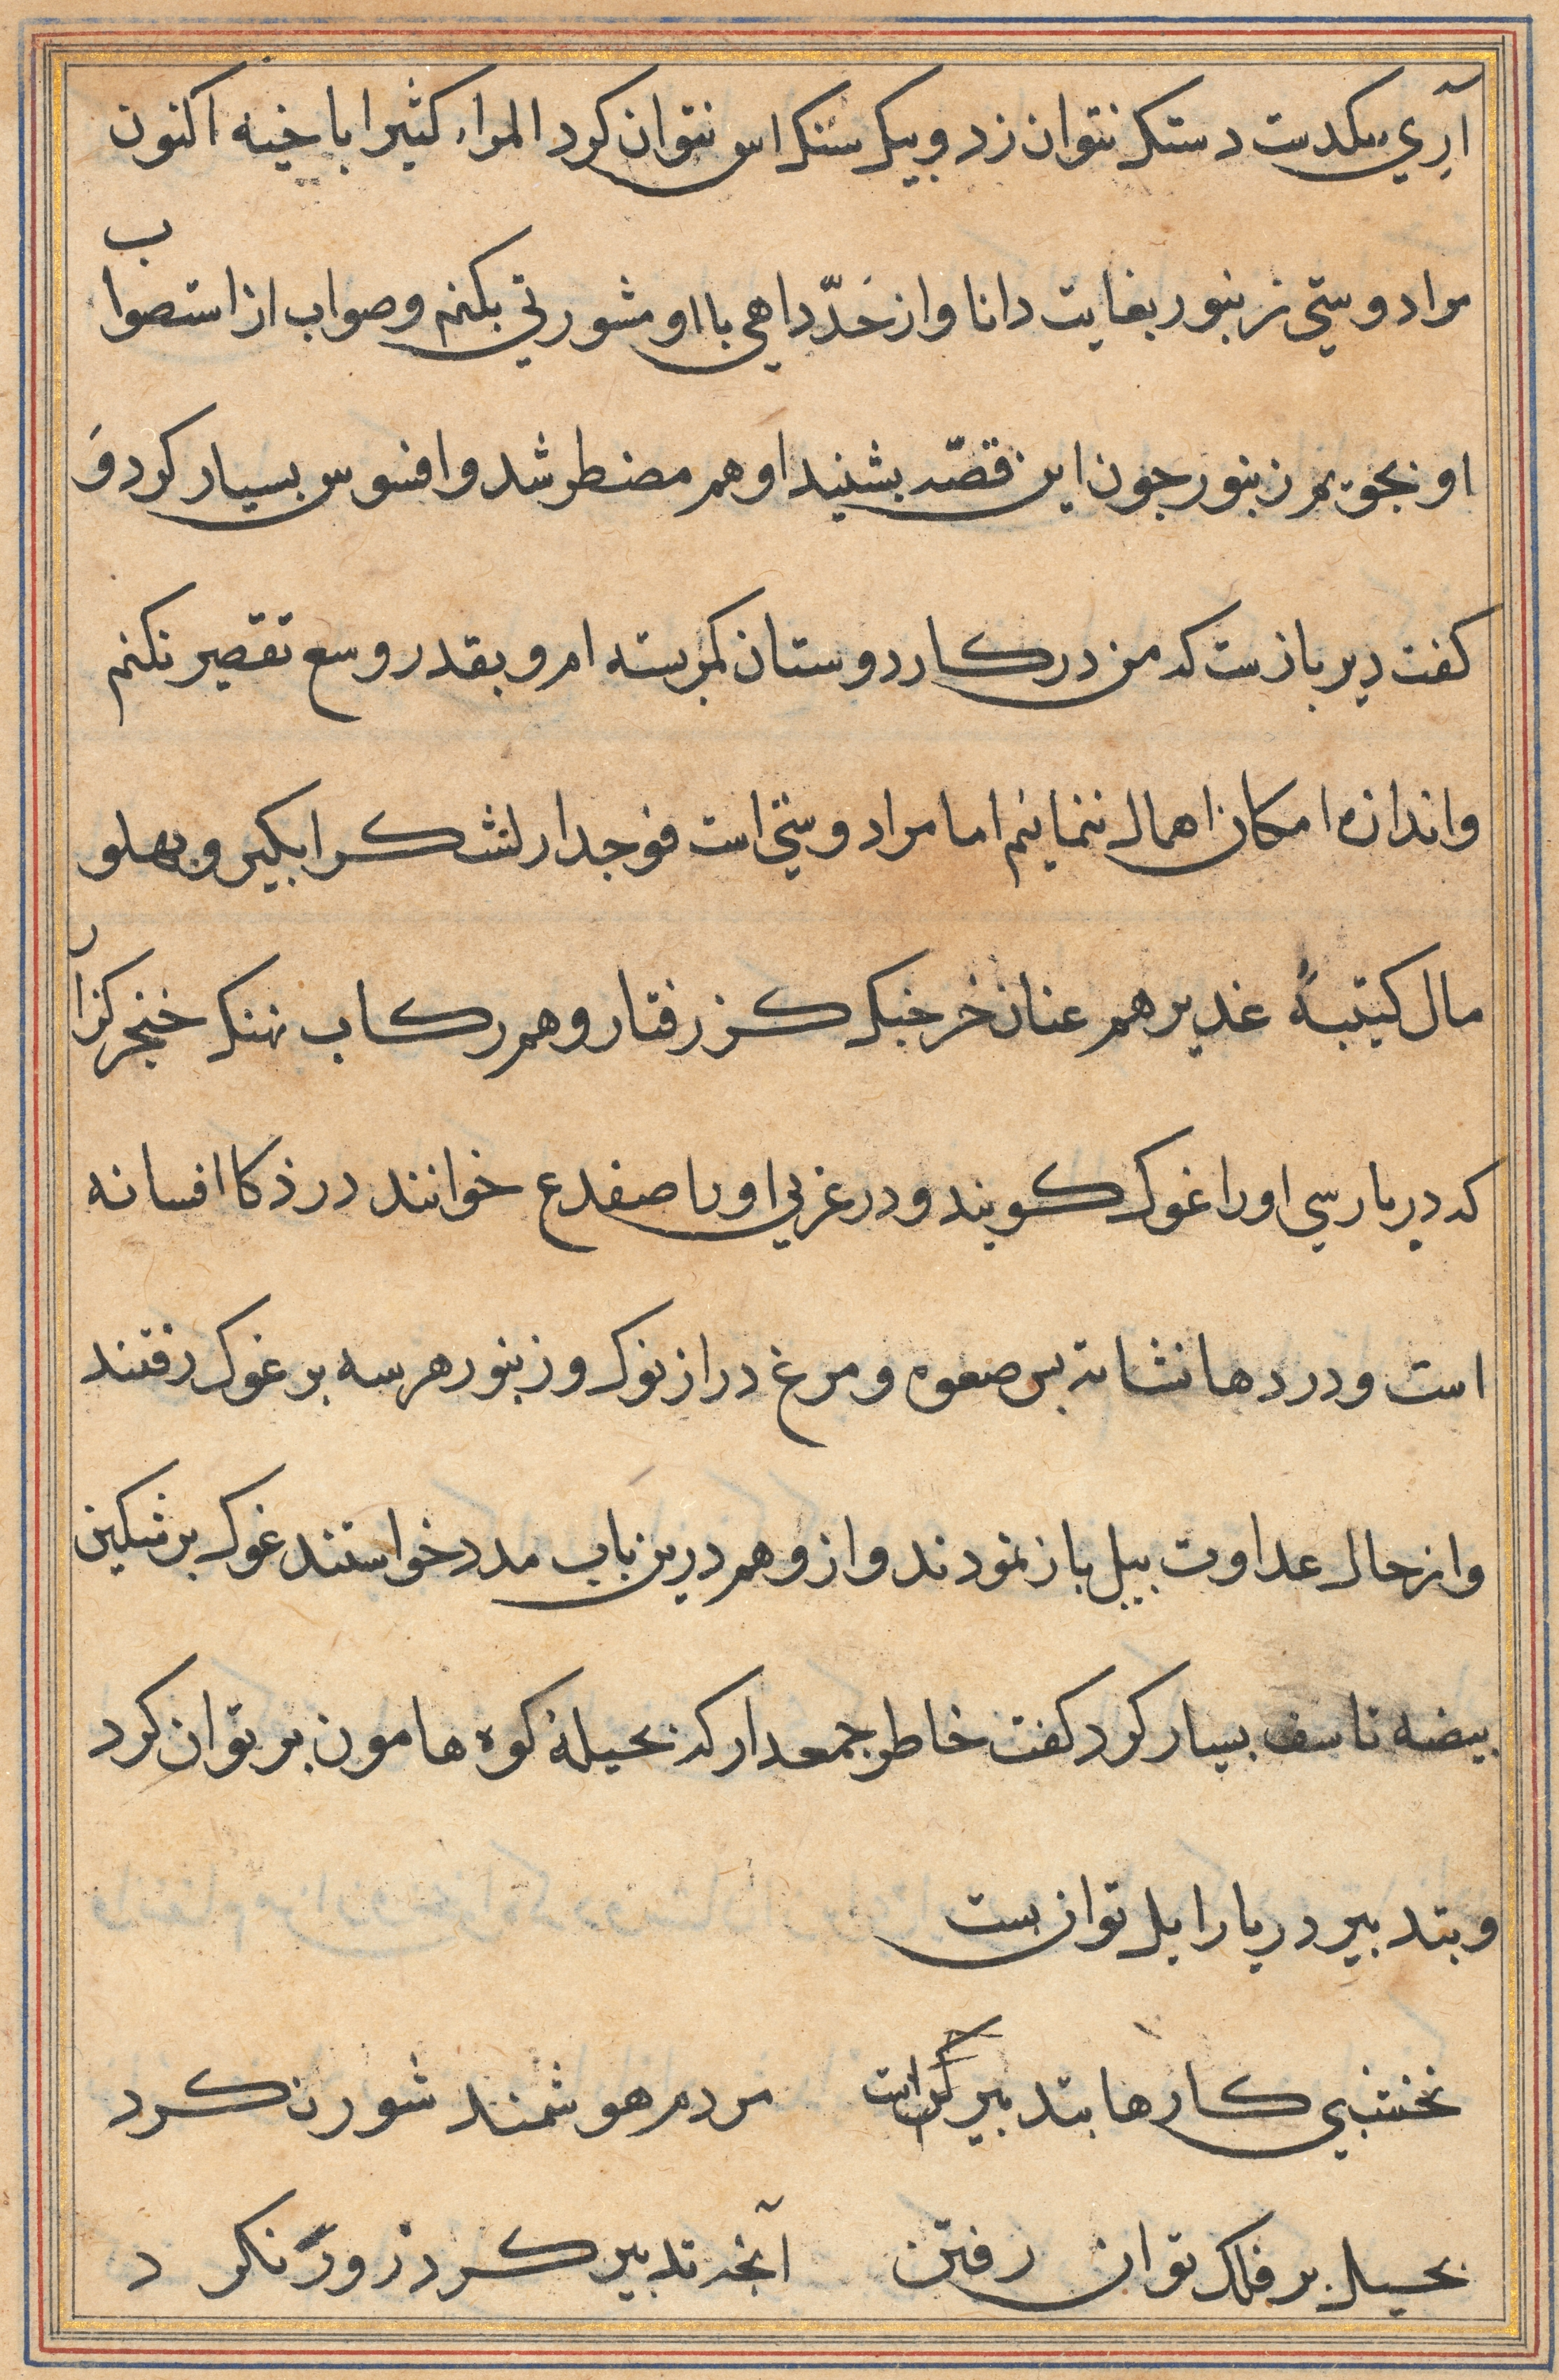 آرِي بیکدست دستک نتوان زد و بیک سنک اس نتوان کرد المراء کثیرا باخیه اکنون
مرا دوستي زنبور بغایت دانا و از حَدّ داهي با او مشورتي بکنم و صواب از استصواب
او بجویم زنبور جون این قصّه بشنید او هم مضطر شد و افسوس بسیار کرد وَ
کفت دیر بازست که من در کار دوستان کمر بسته ام و بقدر وسع تقصیر نکنم
و اندازه امکان اهمال ننمایم اما مرا دوستي است فوجدار لشکر ابکیر و بهلو
مال کتیبهٔ غدیر هم عنان خرجنک کژ رفتار و هم رکاب نهنک خنجر کزار
که در بارسي او را غوک کویند و در عربي او را ضفدع خوانند در ذکا افسانه
است و در دها نشانه بس صعوه و مرغ دراز نوک و زنبور هر سه بر غوک رفتند
و از حال عداوت بیل باز نمودند و ازو هم درین باب مدد خواستند غوک بر شکستن
بیضه تاسف بسیار کرد کفت خاطر جمع دار که بحیلهٔ کوه هامون بر توان کرد
و بتدبیر دریا را بل توان بست
نخشبي کارها بتدبیر است مردم هوشمند شور نکرد
بحیل بر فلک توان رفتن آنجه تدبیر کرد زور نکرد